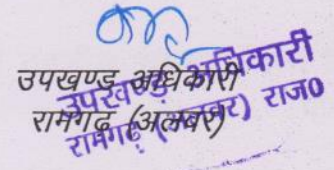 उपखण्ड अधिकारी
रामगढ़ (अलवर)
उपखण्ड अधिकारी
रामगढ़ (अलवर) राज0